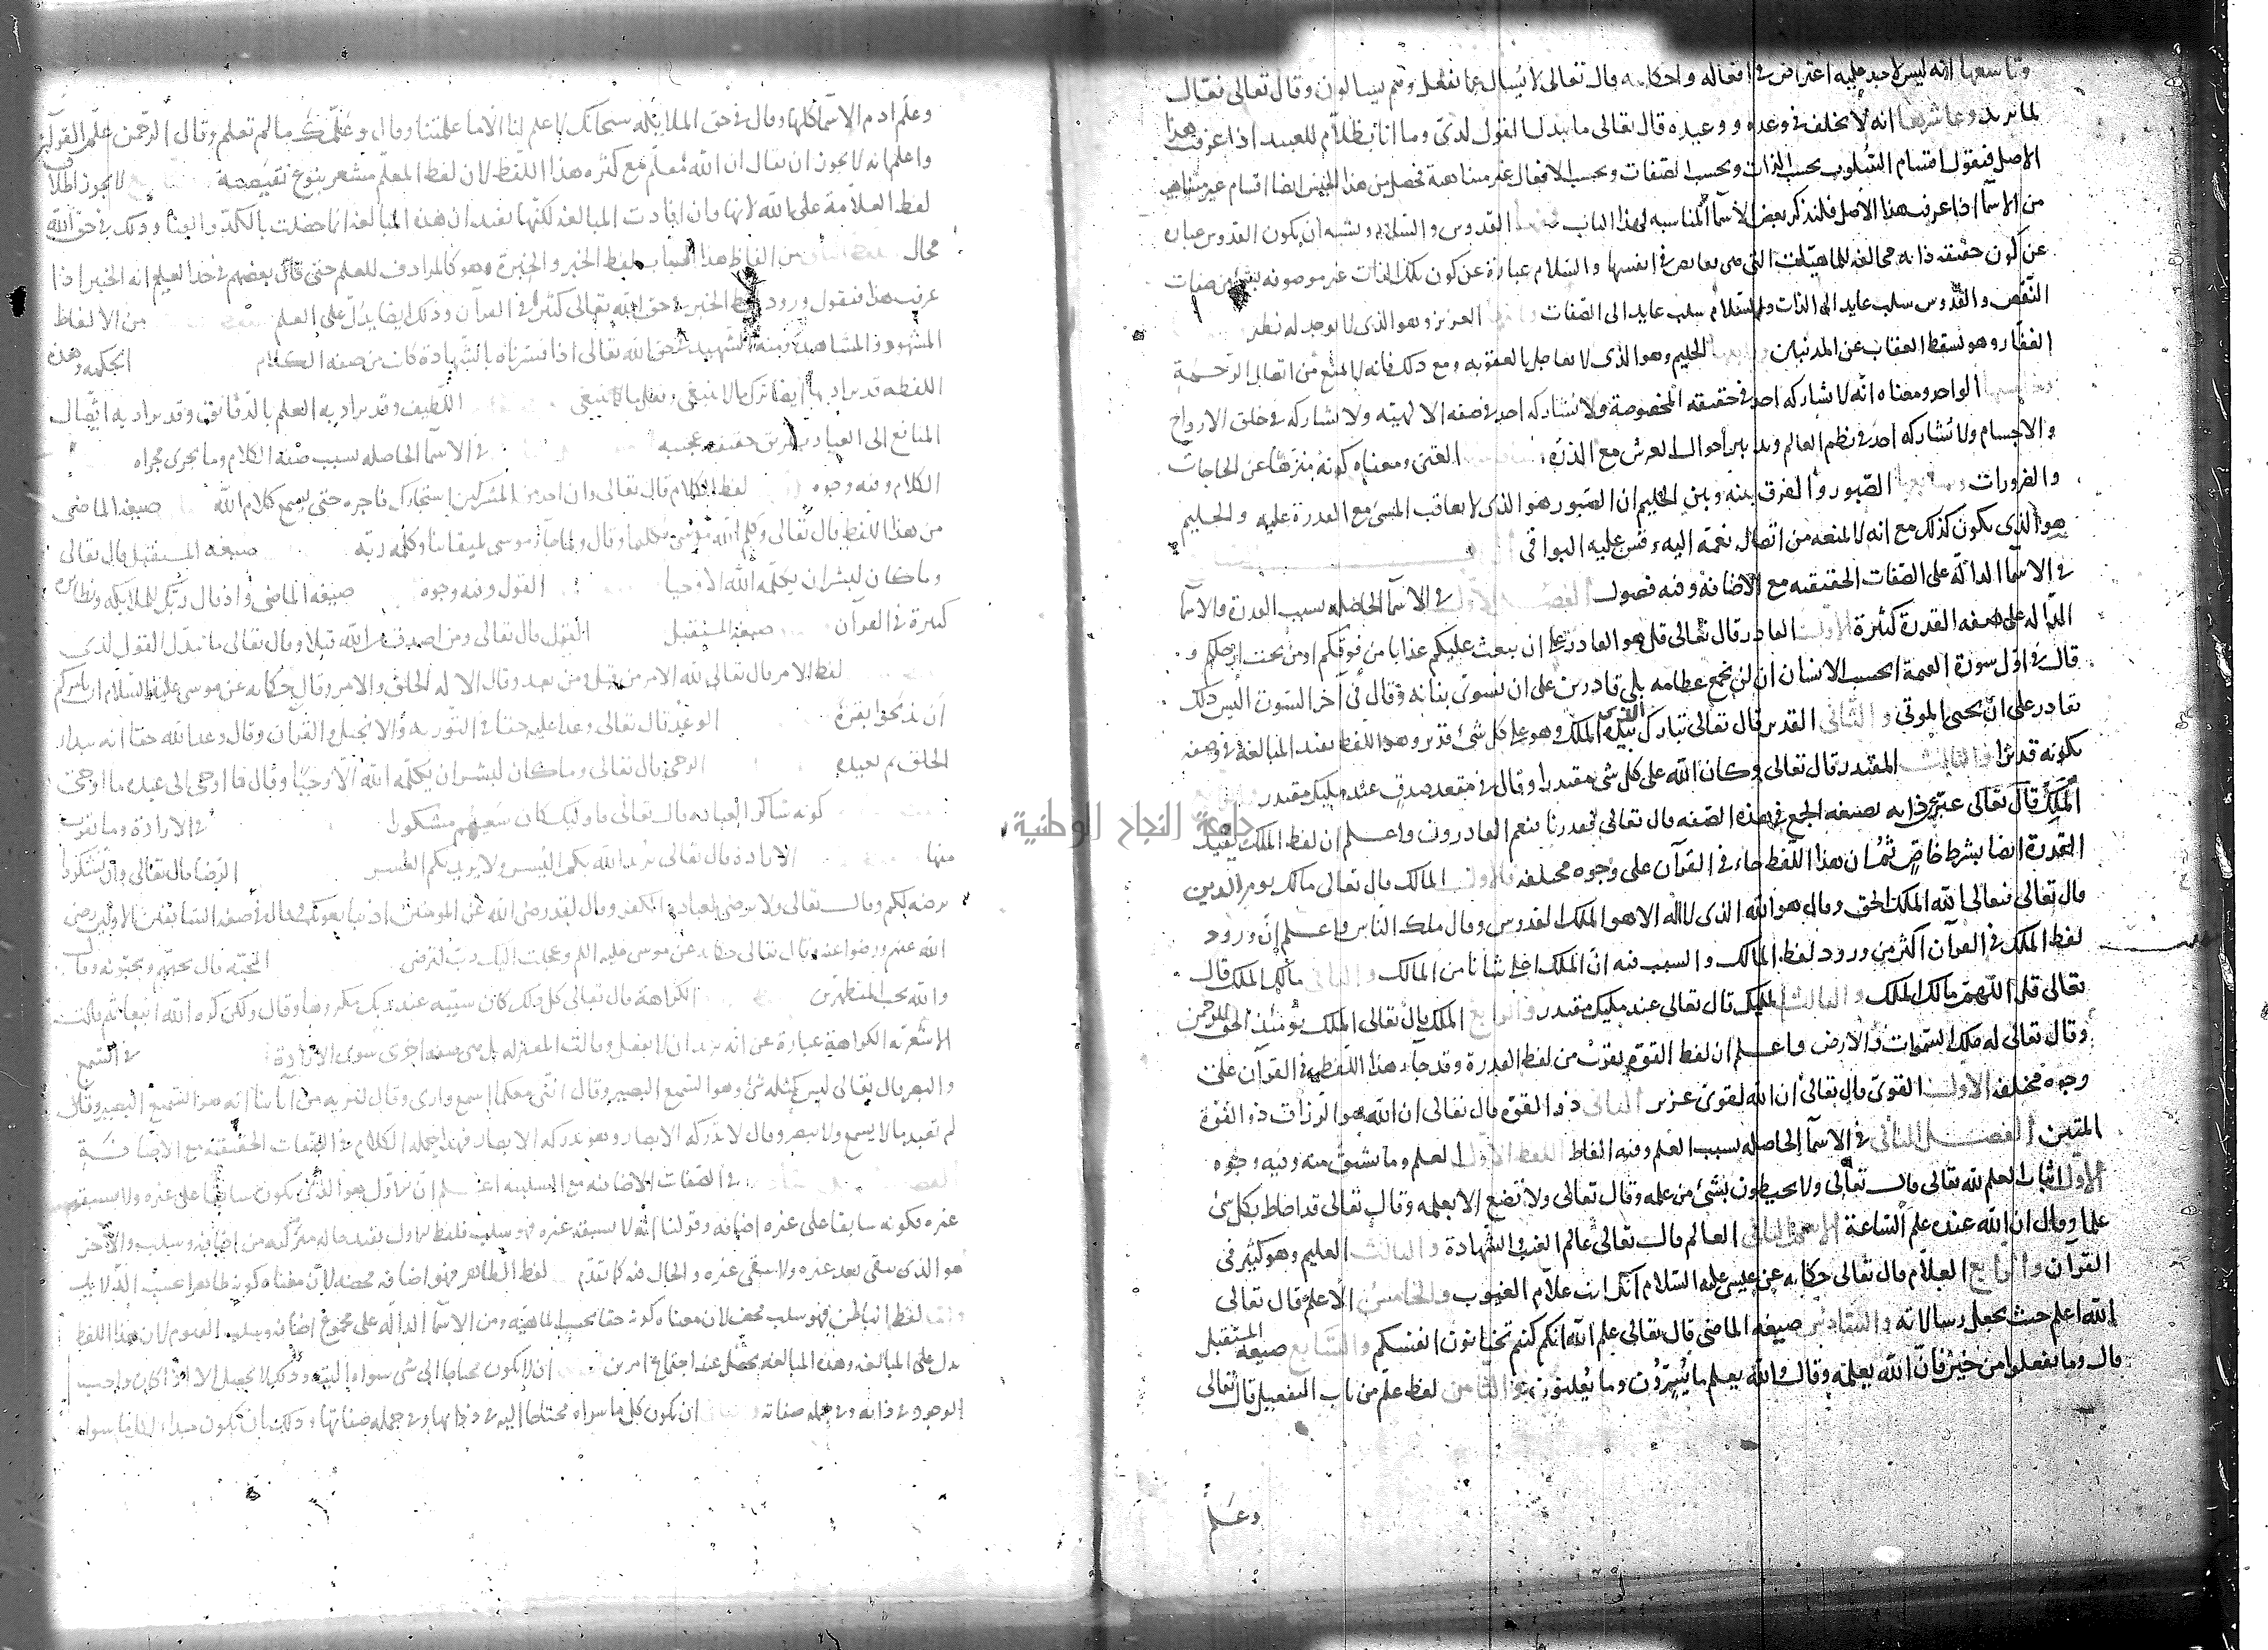 وتاسعها انه ليس لاحد عليه اعتراض في افعاله واحكامه قال تعالى لا يسال عما يفعل وهم يسالون وقال تعالى فعال
لما يريد وعاشرها انه لا يخلف في وعده ووعيده قال تعالى ما يبدل القول لدي وما انا بظلام للعبيد اذا عرفت هذا
الاصل فنقول اقسام السلوب بحسب الذات وبحسب الصفات وبحسب الافعال غير متناهية فيحصل من هذا الجنس ايضا اقسام غير متناهية
من الاسمآ اذا عرفت هذا الاصل فلنذكر بعض الاسمآ المناسبه لهذا الباب فمنها القدوس والسلام ويشبه ان يكون القدوس عبارة
عن كون حقيقه ذاته مخالفه للماهيات التي هي نقايص في انفسها والسلام عبارة عن كون تلك الذات غير موصوفه بشئ من صفات
النقص والقدوس سلب عايد الى الذات والسلام سلب عايد الى الصفات العزيز وهو الذي لا يوجد له نظير
الغفار وهو يسقط العقاب عن المذنبين الحليم وهو الذي لا يعاجل بالعقوبه ومع ذلك فانه لا يمتنع من ايصال الرحمة
الواحد ومعناه انه لا يشاركه احد في حقيقته المخصوصة ولا يشاركه احد في صفه الالهيه ولا يشاركه في خلق الارواح
والاجسام ولا يشاركه احد في نظم العالم وتدبير احوال العرش مع الذرة الغني ومعناه كونه منزها عن الحاجات
والضرورات وسابعها الصبور والفرق بينه وبين الحليم ان الصبور هو الذي لا يعاقب المسئ مع القدرة عليه والحليم
هو الذي يكون كذلك مع انه لا يمنعه من اتصال نعمه اليه وقس عليه البواقي
في الاسمآ الدالة على الصفات الحقيقيه مع الاضافه وفيه فصول الفصل الاول في الاسمآ الحاصله بسبب القدرة والاسمآ
الدالة على صفه القدرة كثيرة الاول القادر قال تعالى قل هو القادر على ان يبعث عليكم عذابا من فوقكم او من تحت ارجلكم و
قال في اول سورة القيمة ايحسب الانسان ان لن نجمع عظامه بلى قادرين على ان نسوي بنانه وقال في آخر السورة اليس ذلك
بقادر على ان يحيى الموتى والثاني القدير قال تعالى تبارك الذي بيده الملك وهو على كل شئ قدير وهذا اللفظ يفيد المبالغة في وصفه
بكونه قديرا والثالث المقتدر قال تعالى وكان الله على كل شئ مقتدرا وقال في مقعد صدق عند مليك مقتدر
الملك قال تعالى عبر عن ذاته بصيغه الجمع في هذه الصفه قال تعالى فقدرنا فنعم القادرون واعلم ان لفظ الملك يفيد
جامعة النجاح الوطنية
القدرة ايضا بشرط خاص ثم ان هذا اللفظ جاء في القرآن على وجوه مختلفه فالاول المالك قال تعالى مالك يوم الدين
قال تعالى فتعالى الله الملك الحق وقال هو الله الذي لا اله الا هو الملك القدوس وقال ملك الناس واعلم ان ورود
لفظ الملك في القرآن اكثر من ورود لفظ المالك والسبب فيه ان الملك اعلى شانا من المالك والثالث مالك الملك قال
تعالى قل اللهم مالك الملك والثالث المليك قال تعالى عند مليك مقتدر والرابع الملك قال تعالى الملك يومئذ الحق للرحمن
وقال تعالى له ملك السموات والارض واعلم ان لفظ القوة يقرب من لفظ القدرة وقد جاء هذا اللفظ في القرآن على
وجوه مختلفه الاول القوي قال تعالى ان الله لقوي عزيز الثاني ذو القوة قال تعالى ان الله هو الرزاق ذو القوة
المتين الفصل الثاني في الاسمآ الحاصله بسبب العلم وفيه الفاظ اللفظ الاول العلم وما يشتق منه وفيه وجوه
الاول اثبات العلم لله تعالى قال تعالى ولا يحيطون بشئ من علمه وقال تعالى ولا تضع الا بعلمه وقال تعالى قد احاط بكل شئ
علما وقال ان الله عنده علم الساعة الاسم الثاني العالم قال تعالى عالم الغيب والشهادة والثالث العليم وهو كثير في
القرآن والرابع العلام قال تعالى حكايه عن عيسى عليه السلام انك انت علام الغيوب والخامس الاعلم قال تعالى
الله اعلم حيث يجعل رسالاته والسادس صيغه الماضي قال تعالى علم الله انكم كنتم تختانون انفسكم والسابع صيغه المستقبل
قال وما تفعلوا من خير فان الله يعلمه وقال والله يعلم ما تسرون وما تعلنون والثامن لفظ علم من باب التفعيل قال تعالى
وعلم
وعلم ادم الاسمآ كلها وقال في حق الملائكه سبحانك لا علم لنا الا ما علمتنا وقال وعلمك ما لم تعلم وقال الرحمن علم القرآن
واعلم انه لا يجوز ان يقال ان الله معلم مع كثره هذا اللفظ لان لفظ المعلم مشعر بنوع نقيصة لا يجوز اطلاق
لفظ العلامة على الله لانها وان افادت المبالغه لكنها تفيد ان هذه المبالغه انما حصلت بالكد والعنا وذلك في حق الله
محال من الفاظ هذا الباب لفظ الخبر والخبرة وهو كالمرادف للعلم حتى قال بعضهم في حد العلم انه الخبر اذا
عرفت هذا فنقول ورود لفظ الخبير في حق الله تعالى كثير في القرآن وذلك ايضا يدل على العلم من الالفاظ
الشهود والمشاهدة ومنه الشهيد في حق الله تعالى اذا فسرناه بالشهادة كان من صفه الكلام الحكمه وهذه
اللفظه قد يراد بها ايضا ترك ما لا ينبغي وفعل ما ينبغي اللطيف وقد يراد به العلم بالدقائق وقد يراد به ايصال
المنافع الى العباد بطريق خفيه عجيبه في الاسمآ الحاصله بسبب صفه الكلام وما يجري مجراه
الكلام وفيه وجوه لفظ الكلام قال تعالى وان احد من المشركين استجارك فاجره حتى يسمع كلام الله صيغه الماضي
من هذا اللفظ قال تعالى وكلم الله موسى تكليما وقال ولما جآء موسى لميقاتنا وكلمه ربه صيغه المستقبل قال تعالى
وما كان لبشر ان يكلمه الله الا وحيا القول وفيه وجوه صيغه الماضي واذ قال ربك للملائكه ونظائره
كثيرة في القرآن صيغه المستقبل القيل قال تعالى ومن اصدق من الله قيلا وقال تعالى ما يبدل القول لدي
لفظ الامر قال تعالى لله الامر من قبل ومن بعد وقال الا له الخلق والامر وقال حكايه عن موسى عليه السلام ان الله يامركم
ان تذبحوا بقرة الوعد قال تعالى وعدا عليه حقا في التوريه والانجيل والقرآن وقال وعد الله حقا انه يبدأ
الخلق ثم يعيده الوحي قال تعالى وما كان لبشر ان يكلمه الله الا وحيا وقال فاوحى الى عبده ما اوحى
كونه شاكرا لعباده قال تعالى فاوليك كان سعيهم مشكورا في الارادة وما يقرب
منها الارادة قال تعالى يريد الله بكم اليسر ولا يريد بكم العسر الرضا قال تعالى وان تشكروا
يرضه لكم وقال تعالى ولا يرضى لعباده الكفر وقال لقد رضي الله عن المؤمنين اذ يبايعونك وقال في صفه السابقين الاولين رضي
الله عنهم ورضوا عنه وقال تعالى حكايه عن موسى عليه السلام وعجلت اليك رب لترضى المحبه قال يحبهم ويحبونه وقال
والله يحب المتطهرين الكراهة قال تعالى كل ذلك كان سيئه عند ربك مكروها وقال ولكن كره الله انبعاثهم قالت
الاشعرية الكراهية عبارة عن انه يريد ان لا يفعل وقالت المعتزله بل هي صفه اخرى سوى الارادة في السمع
والبصر قال تعالى ليس كمثله شئ وهو السميع البصير وقال انني معكما اسمع وارى وقال لنريه من آياتنا انه هو السميع البصير وقال
لم تعبد ما لا يسمع ولا يبصر وقال لا تدركه الابصار وهو يدرك الابصار فهذا جمله الكلام في الصفات الحقيقيه مع الاضافة
في الصفات الاضافيه مع السلبيه اعلم ان الاول هو الذي يكون سابقا على غيره ولا يسبقه
غيره فكونه سابقا على غيره اضافه وقولنا انه لا يسبقه غيره فهو سلب فلفظ الاول يفيد حاله متركبه من اضافه وسلب والآخر
هو الذي يبقى بعد غيره ولا يبقى غيره والحال فيه كما تقدم لفظ الظاهر فهو اضافه محضه لان معناه كونه ظاهرا بحسب الدلائل
لفظ الباطن فهو سلب محض لان معناه كونه خفيا بحسب الماهيه ومن الاسمآ الدالة على مجموع اضافه وسلب القيوم لان هذا اللفظ
يدل على المبالغه وهذه المبالغه تحصل عند اجتماع امرين ان لا يكون محتاجا الى شئ سواه البته وذلك لا يحصل الا اذا كان واجب
الوجود في ذاته وفي جمله صفاته ان يكون كل ما سواه محتاجا اليه في ذواتها وفي جمله صفاتها وذلك بان يكون مبدا لكل ما سواه